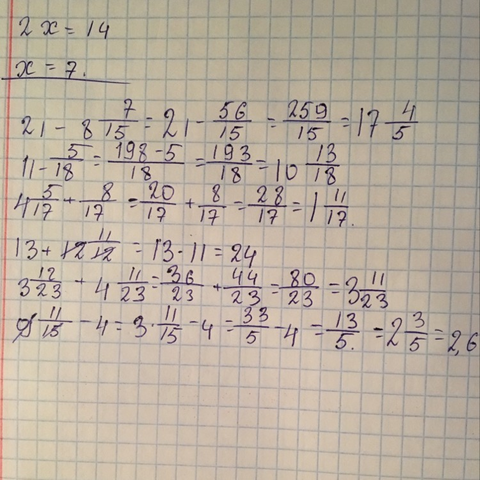 2x = 14
x = 7.
21 - 8 7/15 = 21 - 56/15 = 259/15 = 17 4/5
11 - 5/18 = 198-5/18 = 193/18 = 10 13/18
4 5/17 + 8/17 = 20/17 + 8/17 = 28/17 = 1 11/17.
13 + 12 11/12 = 13 · 11 = 24
3 12/23 + 4 11/23 = 36/23 + 44/23 = 80/23 = 3 11/23
11/15 - 4 = 3 · 11/15 - 4 = 33/5 - 4 = 13/5. = 2 3/5 = 2,6